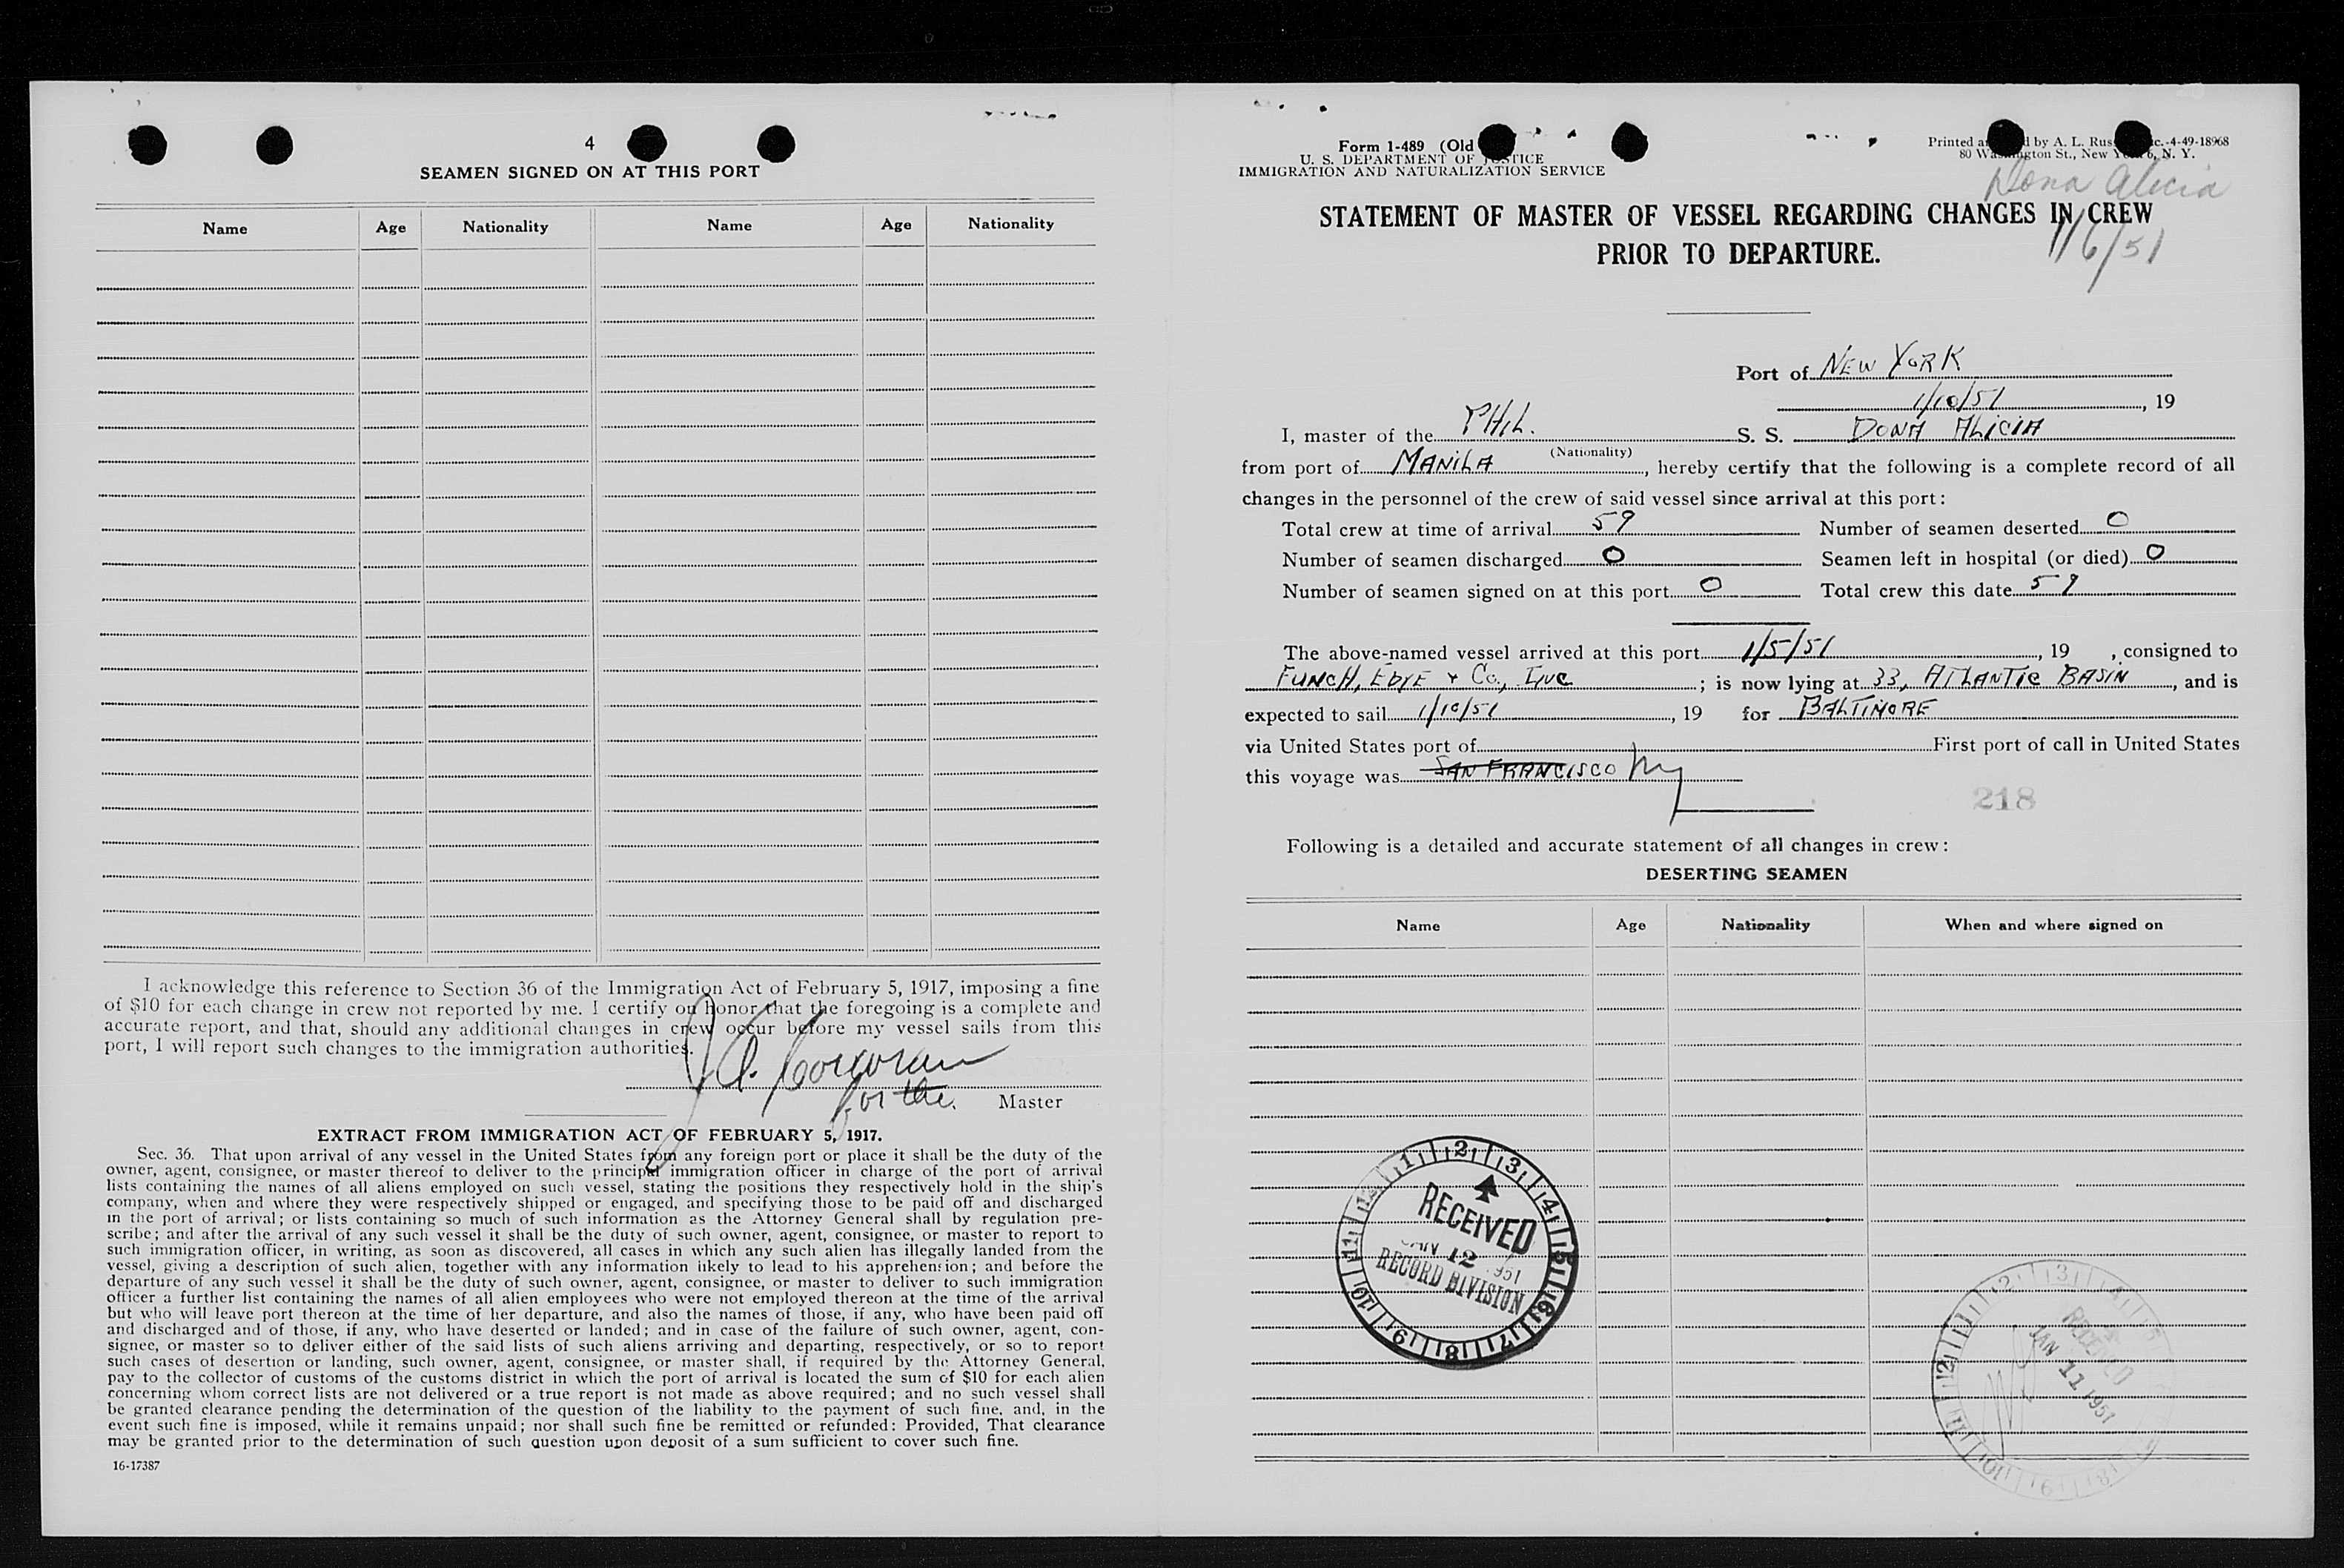 4
SEAMEN SIGNED ON AT THIS PORT
Name Age Nationality Name Age Nationality
I acknowledge this reference to Section 36 of the Immigration Act of February 5, 1917, imposing a fine
of $10 for each change in crew not reported by me. I certify on honor that the foregoing is a complete and
accurate report, and that, should any additional changes in crew occur before my vessel sails from this
port, I will report such changes to the immigration authorities.
J. A. Corcoran
for the. Master
EXTRACT FROM IMMIGRATION ACT OF FEBRUARY 5, 1917.
Sec. 36. That upon arrival of any vessel in the United States from any foreign port or place it shall be the duty of the
owner, agent, consignee, or master thereof to deliver to the principal immigration officer in charge of the port of arrival
lists containing the names of all aliens employed on such vessel, stating the positions they respectively hold in the ship's
company, when and where they were respectively shipped or engaged, and specifying those to be paid off and discharged
in the port of arrival; or lists containing so much of such information as the Attorney General shall by regulation pre-
scribe; and after the arrival of any such vessel it shall be the duty of such owner, agent, consignee, or master to report to
such immigration officer, in writing, as soon as discovered, all cases in which any such alien has illegally landed from the
vessel, giving a description of such alien, together with any information likely to lead to his apprehension; and before the
departure of any such vessel it shall be the duty of such owner, agent, consignee, or master to deliver to such immigration
officer a further list containing the names of all alien employees who were not employed thereon at the time of the arrival
but who will leave port thereon at the time of her departure, and also the names of those, if any, who have been paid off
and discharged and of those, if any, who have deserted or landed; and in case of the failure of such owner, agent, con-
signee, or master so to deliver either of the said lists of such aliens arriving and departing, respectively, or so to report
such cases of desertion or landing, such owner, agent, consignee, or master shall, if required by the Attorney General,
pay to the collector of customs of the customs district in which the port of arrival is located the sum of $10 for each alien
concerning whom correct lists are not delivered or a true report is not made as above required; and no such vessel shall
be granted clearance pending the determination of the question of the liability to the payment of such fine, and, in the
event such fine is imposed, while it remains unpaid; nor shall such fine be remitted or refunded: Provided, That clearance
may be granted prior to the determination of such question upon deposit of a sum sufficient to cover such fine.
16-17387
Form 1-489 (Old
U. S. DEPARTMENT OF JUSTICE
IMMIGRATION AND NATURALIZATION SERVICE
Printed by A. L. 4-49-18968
80 Washington St., New York 6, N. Y.
Dona Alicia
STATEMENT OF MASTER OF VESSEL REGARDING CHANGES IN CREW
PRIOR TO DEPARTURE.
1/6/51
Port of NEW YORK
1/10/51, 19
I, master of the PHIL. S. S. DONA ALICIA
(Nationality)
from port of MANILA, hereby certify that the following is a complete record of all
changes in the personnel of the crew of said vessel since arrival at this port:
Total crew at time of arrival 59 Number of seamen deserted 0
Number of seamen discharged 0 Seamen left in hospital (or died) 0
Number of seamen signed on at this port 0 Total crew this date 59
The above-named vessel arrived at this port 1/5/51, 19 , consigned to
FUNCH, EDYE & Co., INC; is now lying at 33, ATLANTIC BASIN, and is
expected to sail 1/10/51, 19 for BALTIMORE
via United States port of First port of call in United States
this voyage was SAN FRANCISCO NY
218
Following is a detailed and accurate statement of all changes in crew:
DESERTING SEAMEN
Name Age Nationality When and where signed on
1 2 3 4 5 6 7 8 9 10 11 12
RECEIVED
JAN 12 1951
RECORD DIVISION
RECEIVED
JAN 11 1951